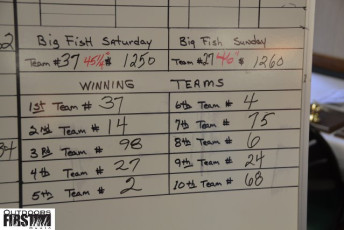 Big Fish Saturday
Big Fish Sunday
Team #37 45¼" $ 1250
Team #27 46" $ 1260
WINNING TEAMS
1st Team # 37
6th Team # 4
2nd Team # 14
7th Team # 75
3rd Team # 98
8th Team # 6
4th Team # 27
9th Team # 24
5th Team # 2
10th Team # 68
OUTDOORS
FIRST